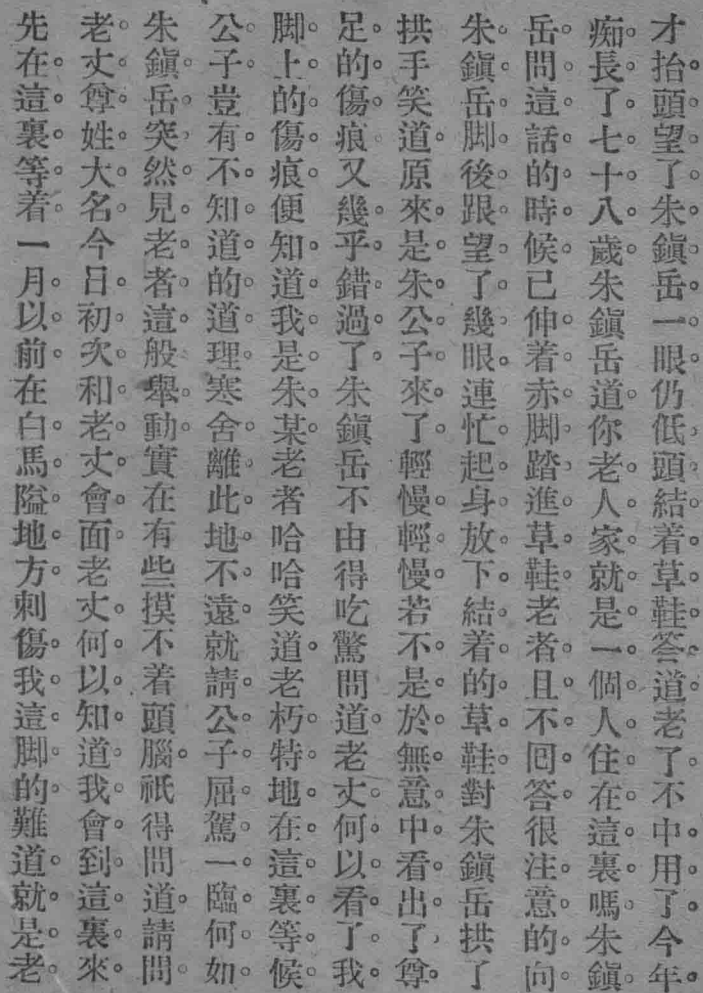 才抬頭望了朱鎮岳一眼仍低頭結着草鞋答道老了不中用了今年
痴長了七十八歲朱鎮岳道你老人家就是一個人住在這裏嗎朱鎮
岳問這話的時候已伸着赤脚踏進草鞋老者且不囘答很注意的向
朱鎮岳脚後跟望了幾眼連忙起身放下結着的草鞋對朱鎮岳拱了
拱手笑道原來是朱公子來了輕慢輕慢若不是於無意中看出了尊
足的傷痕又幾乎錯過了朱鎮岳不由得吃驚問道老丈何以看了我
脚上的傷痕便知道我是朱某老者哈哈笑道老朽特地在這裏等候
公子豈有不知道的道理寒舍離此地不遠就請公子屈駕一臨何如
朱鎮岳突然見老者這般舉動實在有些摸不着頭腦祇得問道請問
老丈尊姓大名今日初次和老丈會面老丈何以知道我會到這裏來
先在這裏等着一月以前在白馬隘地方刺傷我這脚的難道就是老